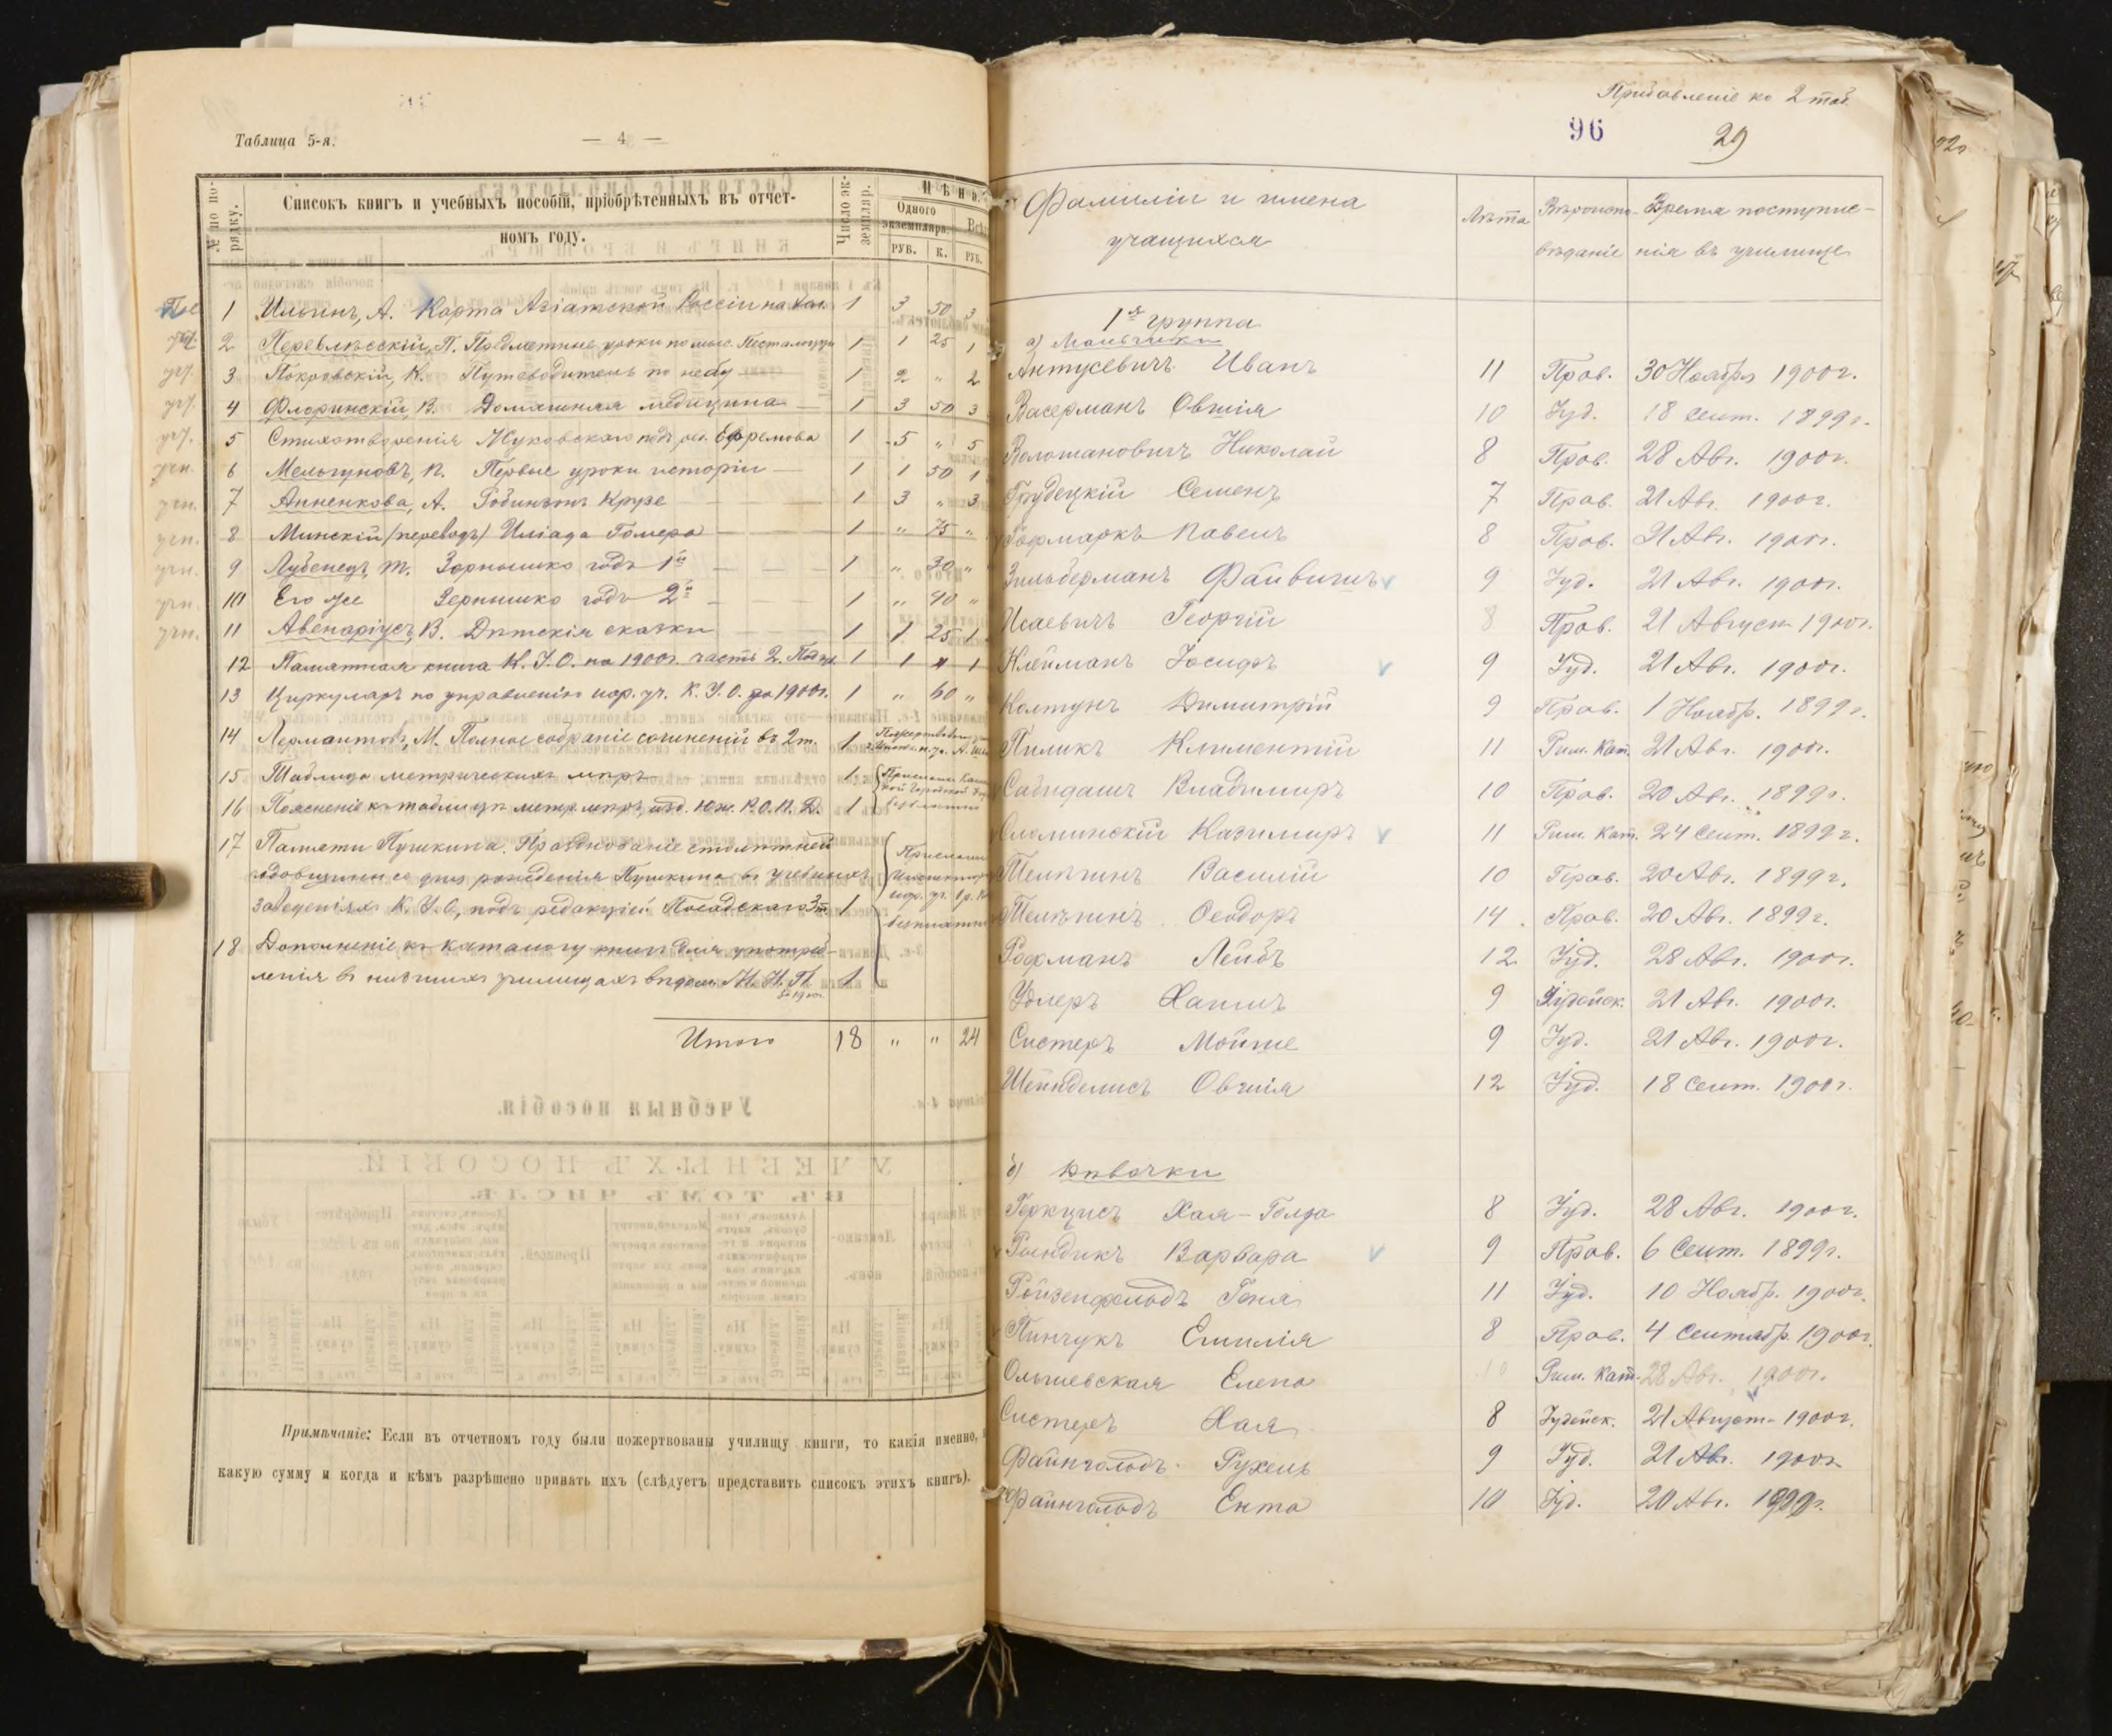 Таблица 5-я.
— 4 —
№ по порядку.
Списокъ книгъ и учебныхъ пособій, пріобрѣтенныхъ въ отчет-
номъ году.
Число экземпляр.
Цѣна
Одного экземпляра.
РУБ. К. РУБ.
1 Ильинъ, А. Карта Азіатской Россіи на 1 3 50 3
уч. 2 Перевлѣсскій, П. Предметные уроки по мыс. Песталоцци 1 1 25 1
уч. 3 Покровскій, К. Путеводитель по небу 1 2 " 2
уч. 4 Флоринскій, В. Домашняя медицина 1 3 50 3
уч. 5 Стихотворенія Жуковскаго подъ ред. Ефремова 1 5 " 5
учн. 6 Мельгуновъ, П. Первые уроки исторіи 1 1 50 1
учн. 7 Анненкова, А. Робинзонъ Крузе 1 3 " 3
учн. 8 Минскій (переводъ) Иліада Гомера 1 " 75 "
учн. 9 Лубенецъ, Т. Зернышко годъ 1й 1 " 30 "
учн. 10 Его же Зернышко годъ 2й 1 " 40 "
учн. 11 Авенаріусъ, В. Дѣтскія сказки 1 1 25 1
12 Памятная книга К. У. О. на 1900г. часть 2. 1 1 " 1
13 Циркуляръ по управленію нар. уч. К. У. О. за 1900г. 1 " 60 "
14 Лермантовъ, М. Полное собраніе сочиненій въ 2т. 1
15 Таблица метрическихъ мѣръ 1
16 Поясненіе къ таблицѣ метр. мѣръ, изд. Юж. Р. О. П. Д. 1
17 Памяти Пушкина. Празднованіе столѣтней
годовщины со дня рожденія Пушкина въ учебныхъ
заведеніяхъ К. У. О, подъ редакціей Посадскаго 1
18 Дополненіе къ каталогу книгъ для употреб-
ленія въ низшихъ училищахъ вѣдом. М. Н. П. 1
за 1900г.
Итого 18 " " 24
Примѣчаніе: Если въ отчетномъ году были пожертвованы училищу книги, то какія именно,
какую сумму и когда и кѣмъ разрѣшено принять ихъ (слѣдуетъ представить списокъ этихъ книгъ).
Прибавленіе ко 2 таб.
96 29
Фамиліи и имена
учащихся
Лѣта
Вѣроиспо-
вѣданіе
Время поступле-
нія въ училище
1я группа
а) Мальчики
Антусевичъ Иванъ 11 Прав. 30 Ноября 1900г.
Васерманъ Овшія 10 Іуд. 18 Сент. 1899г.
Волошановичъ Николай 8 Прав. 28 Авг. 1900г.
Грудецкій Семенъ 7 Прав. 21 Авг. 1900г.
Гофмаркъ Павелъ 8 Прав. 21 Авг. 1900г.
Зильберманъ Файвишъ 9 Іуд. 21 Авг. 1900г.
Исаевичъ Георгій 8 Прав. 21 Август. 1900г.
Клейманъ Іосифъ 9 Іуд. 21 Авг. 1900г.
Колтунъ Димитрій 9 Прав. 1 Ноябр. 1899г.
Пиликъ Климентій 11 Рим. Кат. 21 Авг. 1900г.
Сабидашъ Владимиръ 10 Прав. 20 Авг. 1899г.
Сломинскій Казимиръ 11 Рим. Кат. 24 Сент. 1899г.
Телѣгинъ Василій 10 Прав. 20 Авг. 1899г.
Телѣгинъ Ѳеодоръ 14 Прав. 20 Авг. 1899г.
Рофманъ Лейбъ 12 Іуд. 28 Авг. 1900г.
Удлеръ Хаимъ 9 Іудейск. 21 Авг. 1900г.
Систеръ Мойше 9 Іуд. 21 Авг. 1900г.
Шейнделисъ Овшія 12 Іуд. 18 Сент. 1900г.
б) Дѣвочки
Геркцисъ Хая-Голда 8 Іуд. 28 Авг. 1900г.
Гындикъ Варвара 9 Прав. 6 Сент. 1899г.
Ройзенфельдъ Геня 11 Іуд. 10 Ноябр. 1900г.
Пинчукъ Емилія 8 Прав. 4 Сентябр. 1900г.
Ольшевская Елена 10 Рим. Кат. 28 Авг. 1900г.
Систеръ Хая 8 Іудейск. 21 Август. 1900г.
Файнгольдъ Рухель 9 Іуд. 21 Авг. 1900г.
Файнгольдъ Ента 10 Іуд. 20 Авг. 1899г.